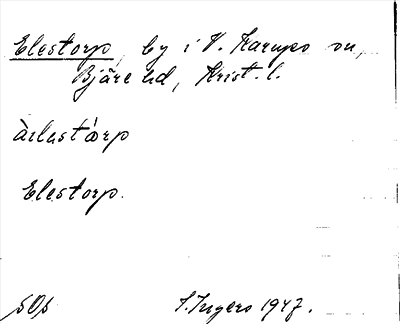 Elestorp, by i V. Karups sn,
Bjäre hd, Krist. l.
àilastårp
Elestorp.
S. Ingers 1947.